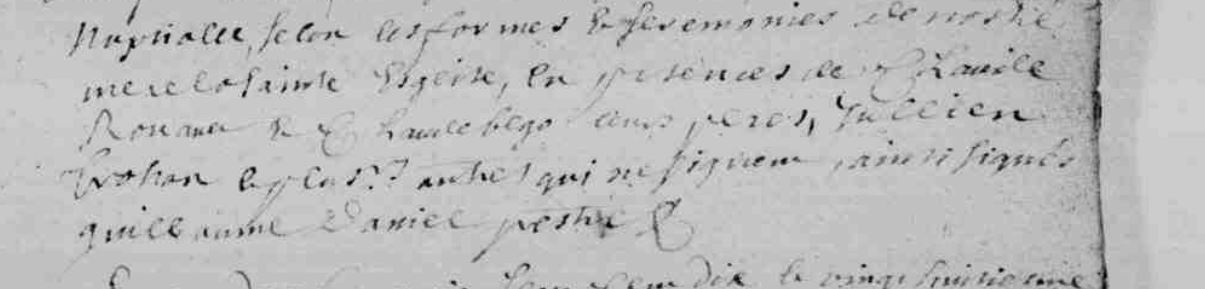 Nuptialle, selon les formes & seremonies de nostre
mere la Sainte Esglise, en presences de Claude
Rouaux & Claude bego leurs peres, Jullien
Trohan & plus.rs autres qui ne signent, ainsi signés
guillaume Daniel prestre &
le vingt huitiesme